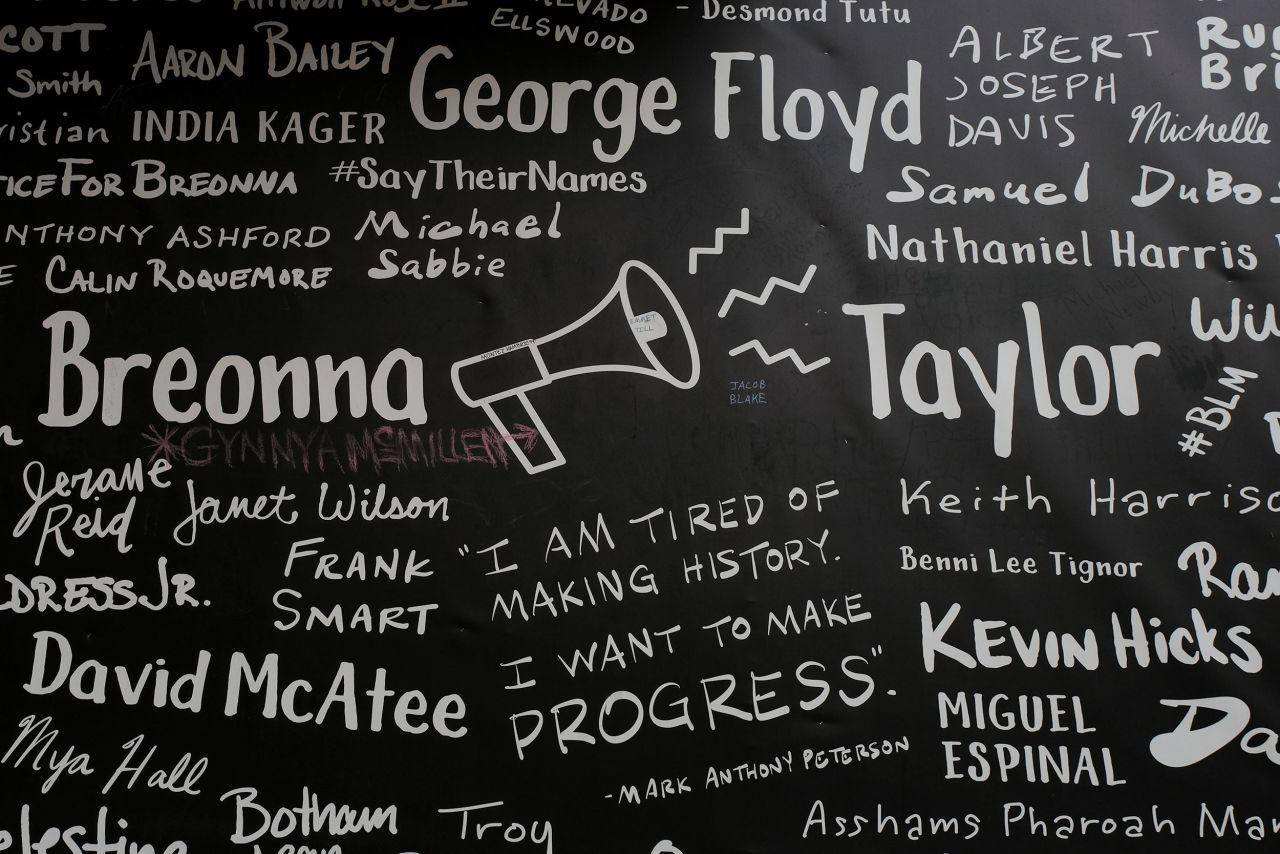 ELLSWOOD
- Desmond Tutu
Smith
AARON BAILEY
George Floyd
ALBERT
JOSEPH
DAVIS
INDIA KAGER
Michelle
BREONNA
#SayTheirNames
Samuel
ANTHONY ASHFORD
Michael
Sabbie
Nathaniel Harris
CALIN ROQUEMORE
EMMET
TILL
Breonna
Taylor
JACOB
BLAKE
#BLM
*GYNNYA MSMILLEN
Jeramie
Reid
Janet Wilson
Keith
FRANK
SMART
"I AM TIRED OF
MAKING HISTORY.
I WANT TO MAKE
PROGRESS".
-MARK ANTHONY PETERSON
Benni Lee Tignor
JR.
KEVIN Hicks
David McAtee
MIGUEL
ESPINAL
Mya Hall
Botham
Troy
Asshams Pharoah